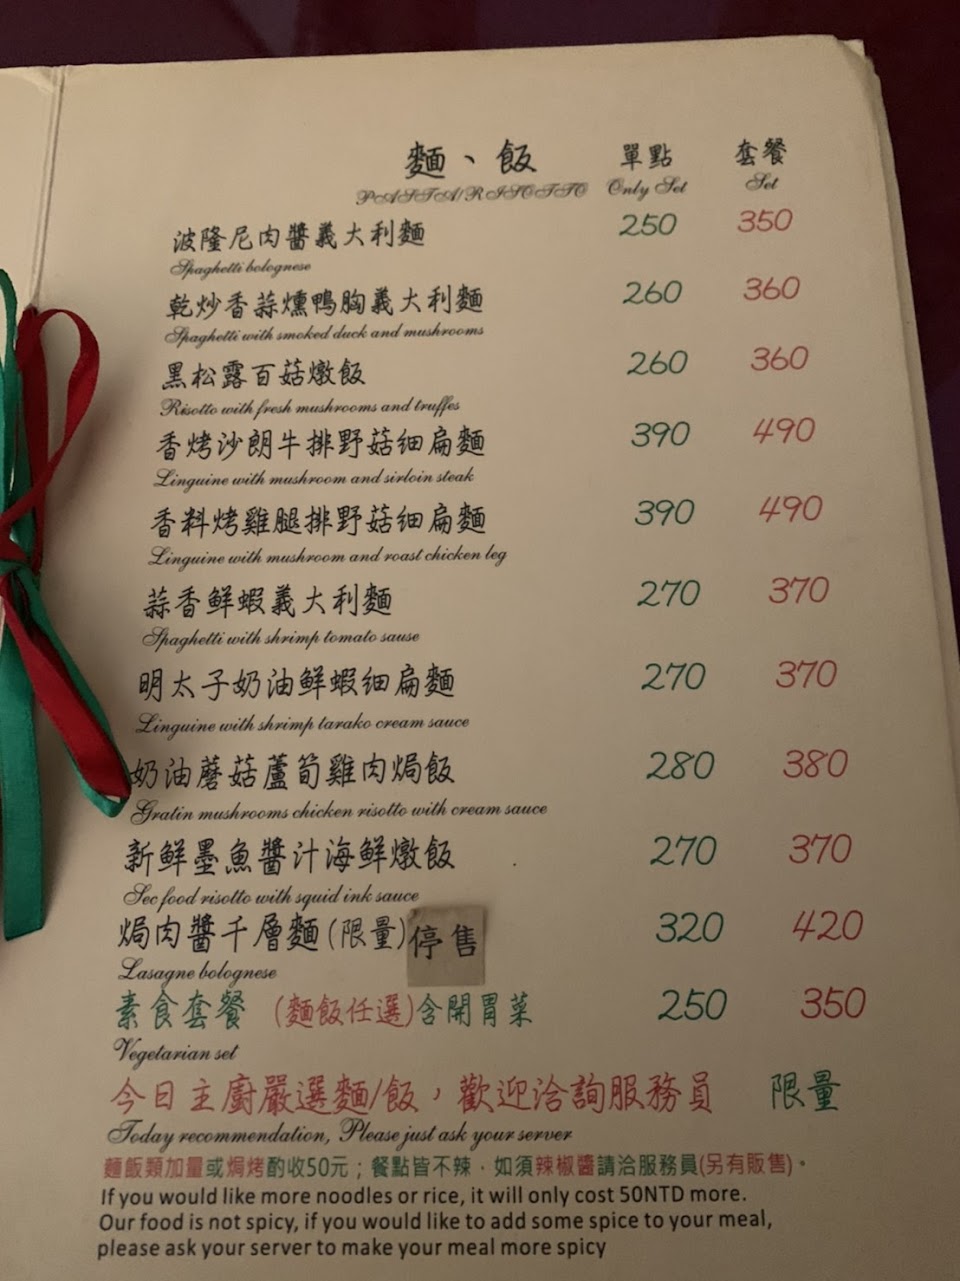 麵、飯 單點 套餐
PASTA/RISOTTO Only Set Set
波隆尼肉醬義大利麵 250 350
Spaghetti bolognese
乾炒香蒜燻鴨胸義大利麵 260 360
Spaghetti with smoked duck and mushrooms
黑松露百菇燉飯 260 360
Risotto with fresh mushrooms and truffes
香烤沙朗牛排野菇細扁麵 390 490
Linguine with mushroom and sirloin steak
香料烤雞腿排野菇細扁麵 390 490
Linguine with mushroom and roast chicken leg
蒜香鮮蝦義大利麵 270 370
Spaghetti with shrimp tomato sause
明太子奶油鮮蝦細扁麵 270 370
Linguine with shrimp tarako cream sauce
奶油蘑菇蘆筍雞肉焗飯 280 380
Gratin mushrooms chicken risotto with cream sauce
新鮮墨魚醬汁海鮮燉飯 270 370
Sec food risotto with squid ink sauce
焗肉醬千層麵(限量)停售 320 420
Lasagne bolognese
素食套餐 (麵飯任選)含開胃菜 250 350
Vegetarian set
今日主廚嚴選麵/飯，歡迎洽詢服務員 限量
Today recommendation, Please just ask your server
麵飯類加量或焗烤酌收50元；餐點皆不辣．如須辣椒醬請洽服務員(另有販售)。
If you would like more noodles or rice, it will only cost 50NTD more.
Our food is not spicy, if you would like to add some spice to your meal,
please ask your server to make your meal more spicy